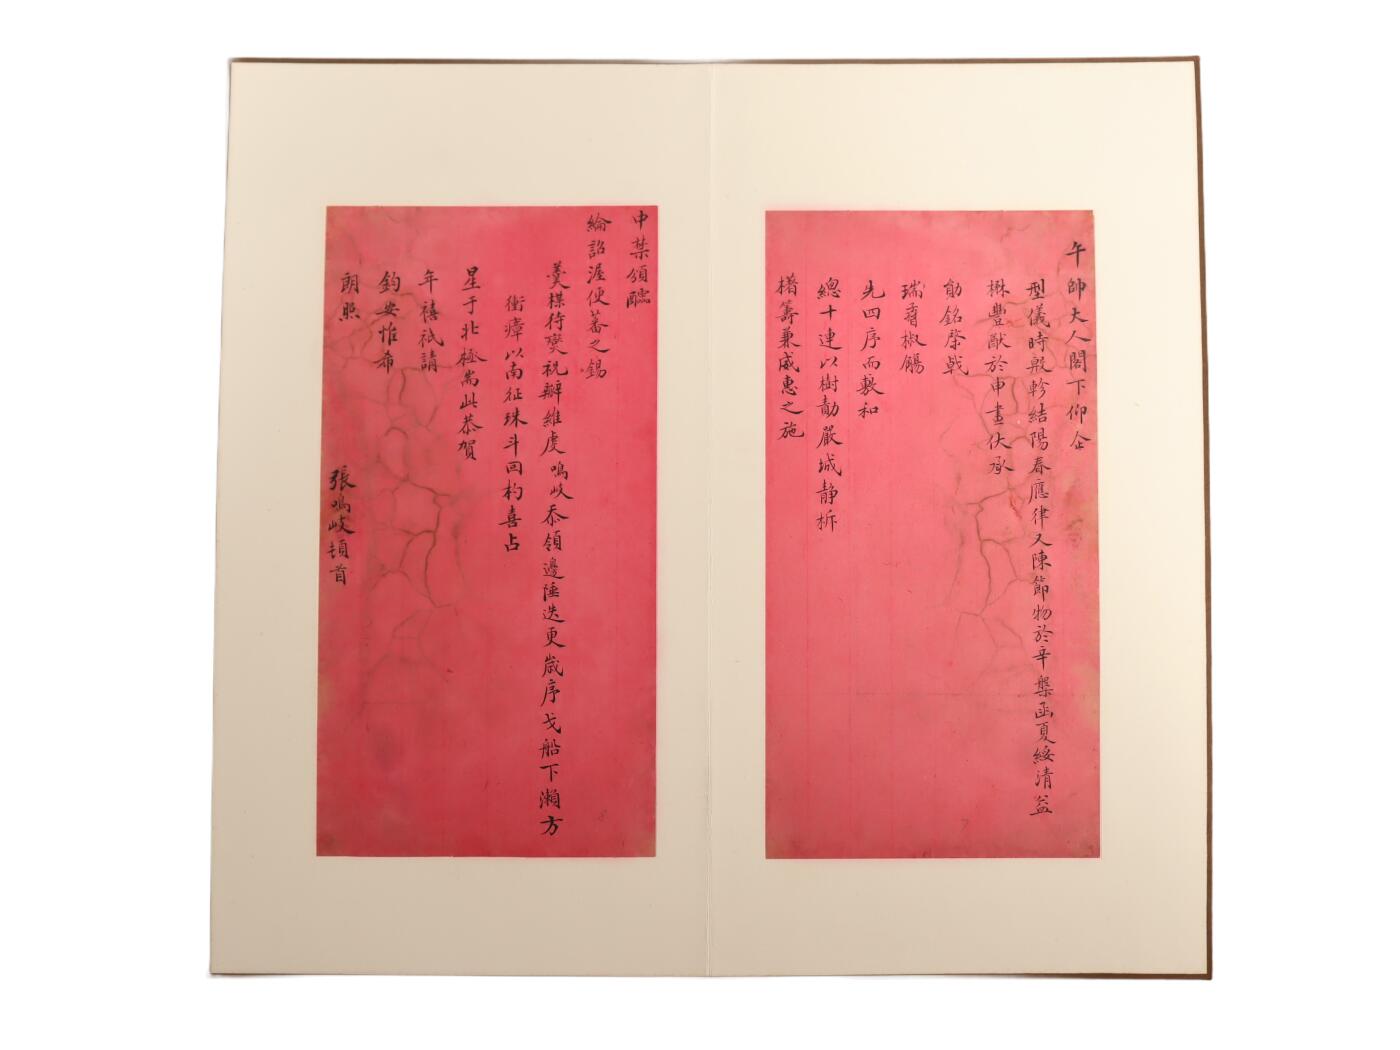 午帥大人閣下仰企
型儀時殷軫結陽春應律又陳節物於辛槃函夏綏清益
楙豐猷於申畫伏承
勛銘棨戟
瑞翥椒觴
先四序而敷和
總十連以樹勣嚴城静柝
楮籌兼威惠之施
中禁頒醹
綸詔渥便蕃之錫
羹楳待燮祝瓣維虔鳴岐忝領邊陲迭更嵗序戈船下瀨方
衝瘴以南征珠斗回杓喜占
星于北極耑此恭賀
年禧祇請
鈞安惟希
朗照
張鳴岐頓首